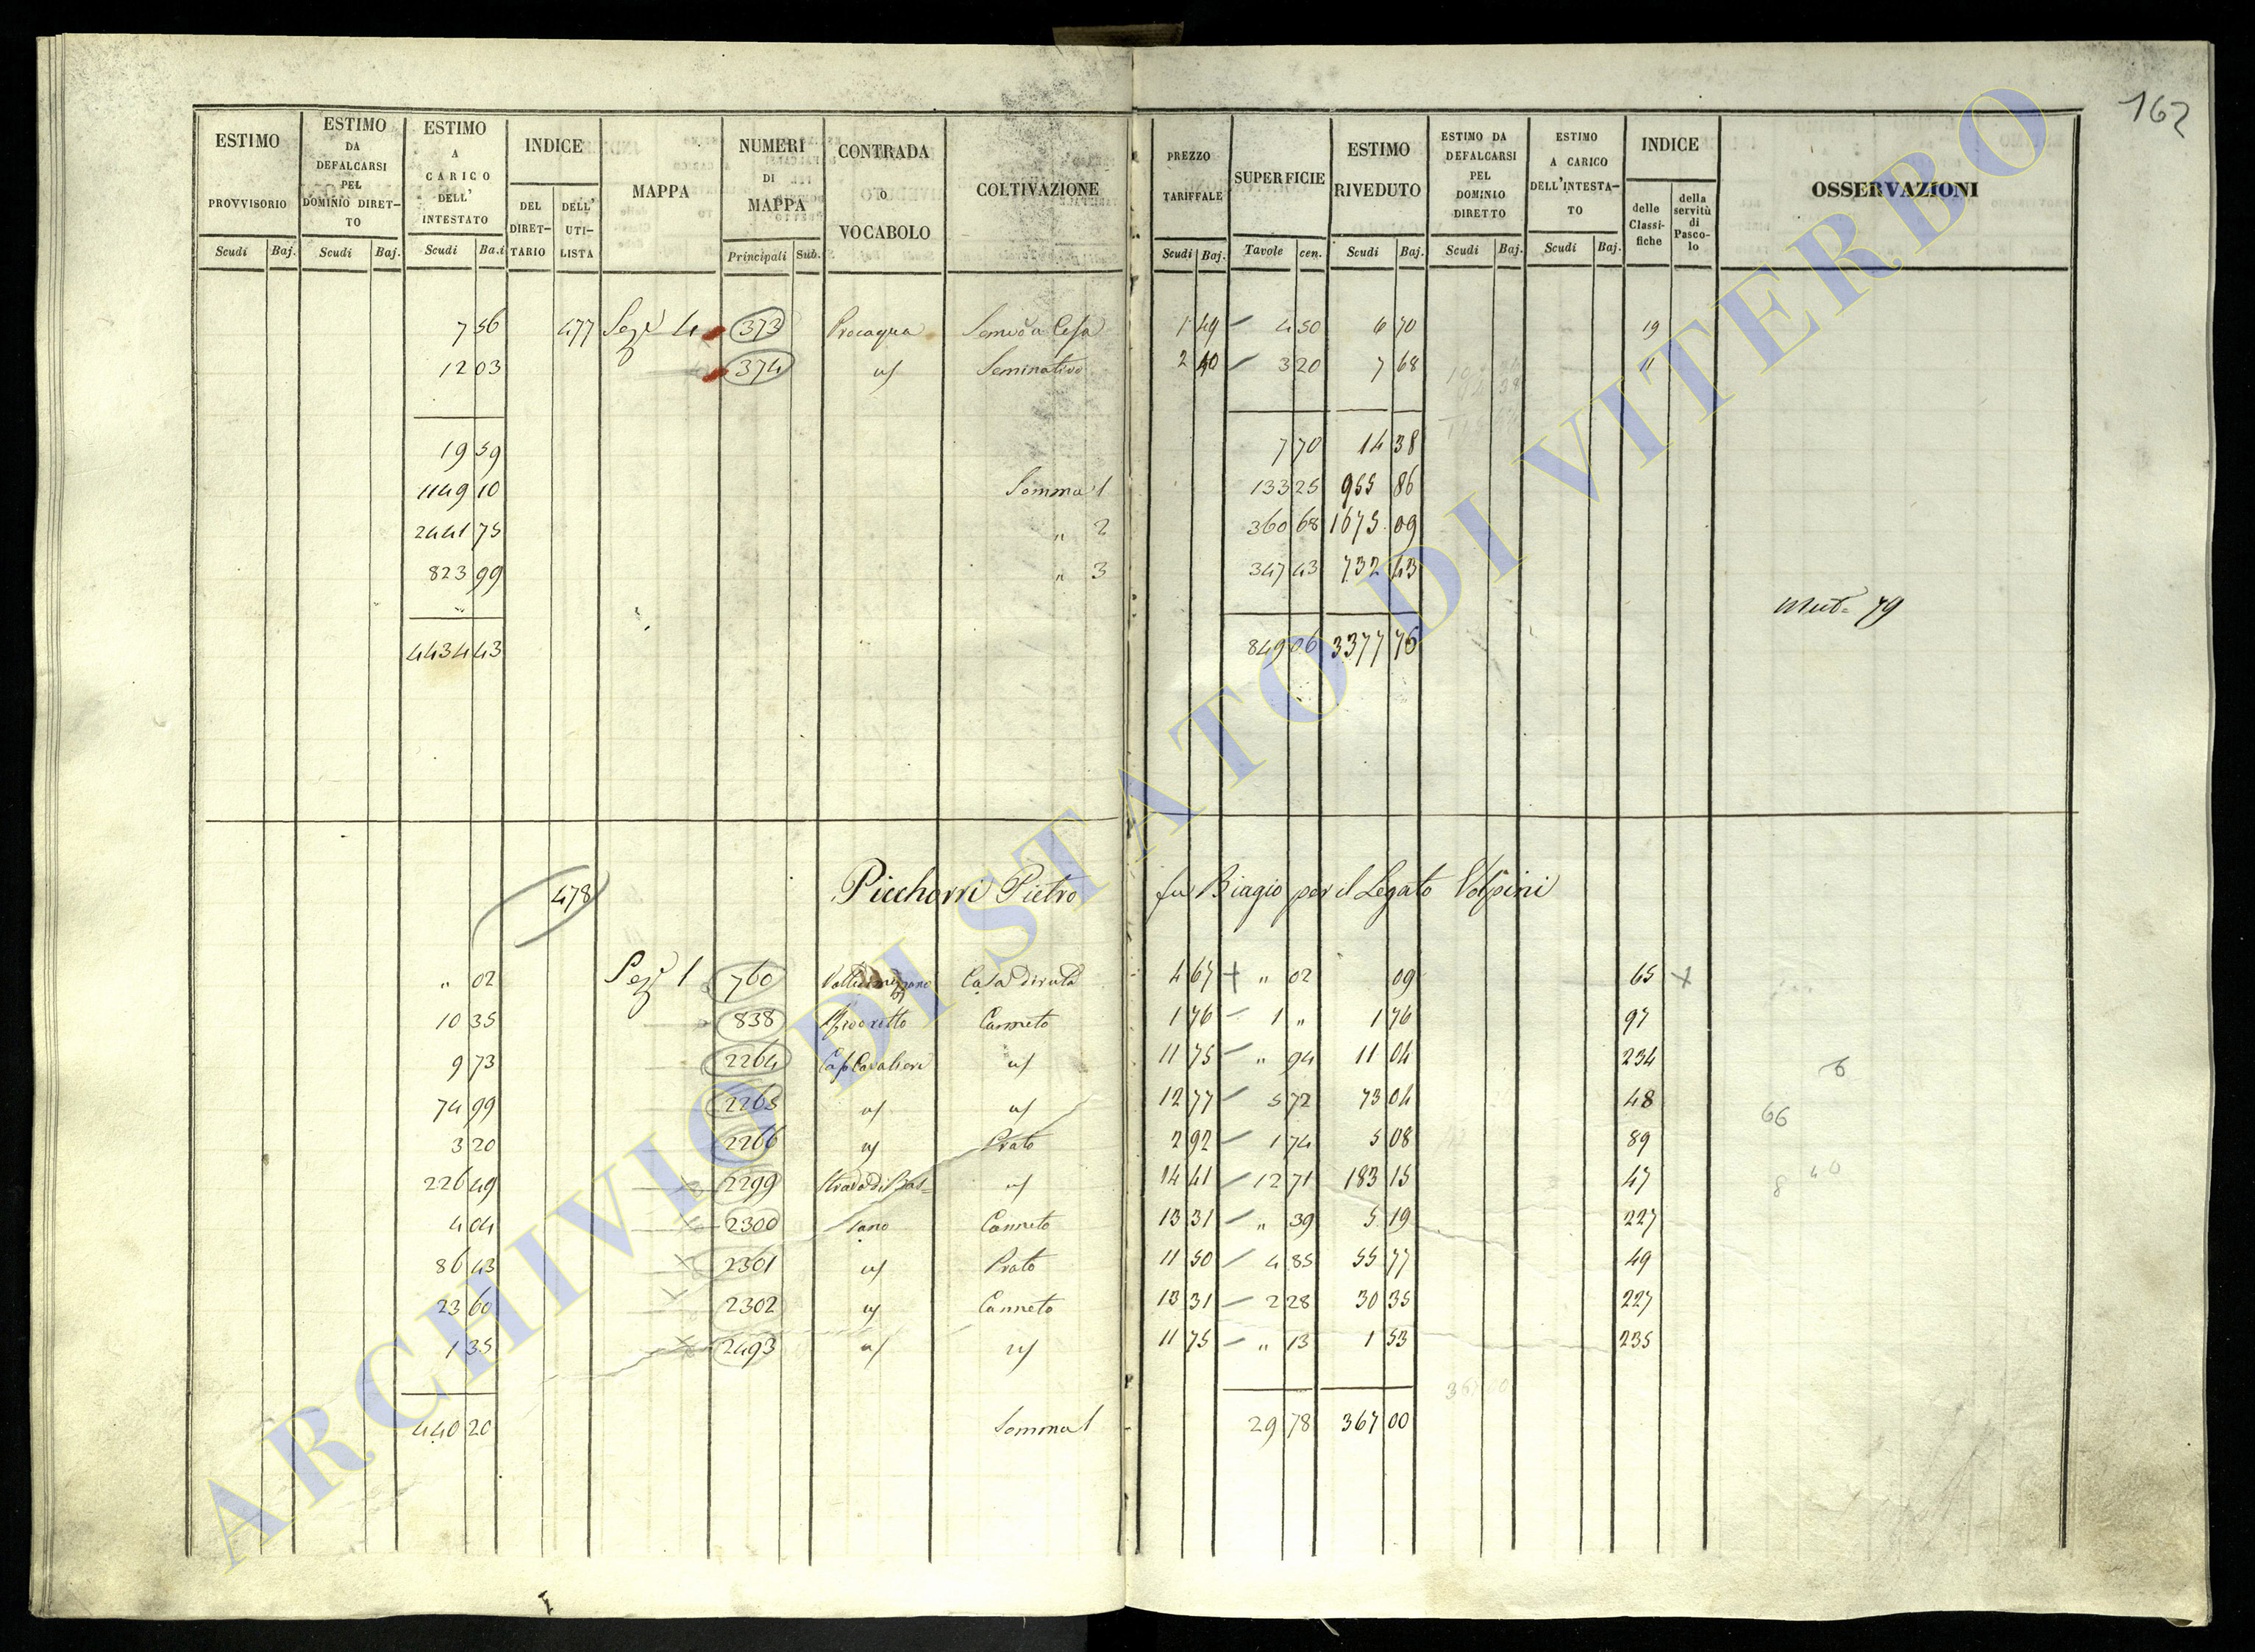 162
ESTIMO PROVVISORIO Scudi Baj.
ESTIMO DA DEFALCARSI PEL DOMINIO DIRET-TO Scudi Baj.
ESTIMO A CARICO DELL' INTESTATO Scudi Ba.i
INDICE DEL DIRET-TARIO DELL' UTI-LISTA
MAPPA
NUMERI DI MAPPA Principali Sub.
CONTRADA o VOCABOLO
COLTIVAZIONE
PREZZO TARIFFALE Scudi Baj.
SUPERFICIE Tavole cen.
ESTIMO RIVEDUTO Scudi Baj.
ESTIMO DA DEFALCARSI PEL DOMINIO DIRETTO Scudi Baj.
ESTIMO A CARICO DELL'INTESTA-TO Scudi Baj.
INDICE delle Classi-fiche della servitù di Pasco-lo
OSSERVAZIONI
7 56 477 Sez. 4 373 Procaqua 1 49 4 50 6 70 19
12 03 374 Seminativo 2 40 3 20 7 68 11
19 59 7 70 14 38
1149 10 Somma 1 133 25 955 86
2441 75 " 2 360 68 1675 09
823 99 " 3 347 43 732 43
Mut= 79
4434 43 849 06 3377 76
478 Picchorri Pietro fu Biagio per il Legato Volpini
" 02 Sez. 1 760 Casa diruta 4 67 " 02 09 65
10 35 838 Canneto 1 76 1 " 1 76 97
9 73 2264 11 75 " 94 11 04 234
74 99 2265 12 77 5 72 73 04 48 66
3 20 2266 Prato 2 92 1 74 5 08 89
226 49 2299 Strada di Bas= 14 41 12 71 183 15 47
4 04 2300 sano Canneto 13 31 " 39 5 19 227
86 43 2301 Prato 11 50 4 85 55 77 49
23 60 2302 Canneto 13 31 2 28 30 35 227
1 35 2493 11 75 " 13 1 53 235
440 20 Somma 1 29 78 367 00
ARCHIVIO DI STATO DI VITERBO